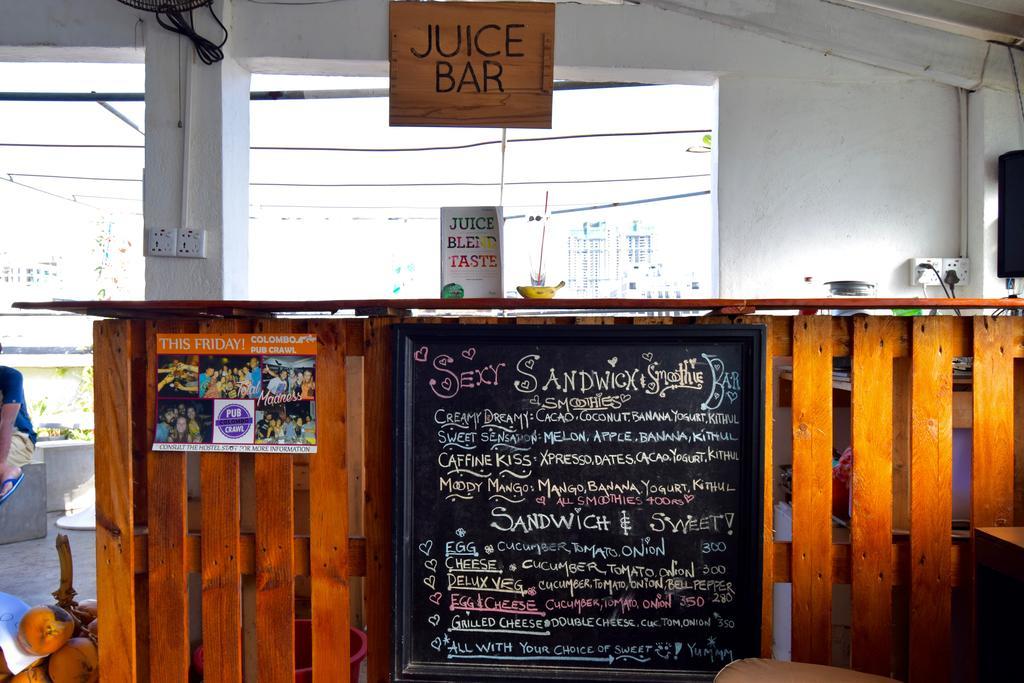 JUICE
BAR
JUICE
BLEND
TASTE
THIS FRIDAY! COLOMBO
PUB CRAWL
Total
Madness
PUB
COLOMBO
CRAWL
CONSULT THE HOSTEL STAFF FOR MORE INFORMATION
SEXY SANDWICH & SMOOTHIE BAR
SMOOTHIES
CREAMY DREAMY: CACAO, COCONUT, BANANA YOGURT, KITHUL
SWEET SENSATION: MELON, APPLE, BANANA, KITHUL
CAFFINE KISS: XPRESSO, DATES, CACAO, YOGURT, KITHUL
MOODY MANGO: MANGO, BANANA, YOGURT, KITHUL
ALL SMOOTHIES 400RS
SANDWICH & SWEET!
EGG CUCUMBER, TOMATO, ONION 300
CHEESE CUCUMBER, TOMATO, ONION 300
DELUX VEG CUCUMBER, TOMATO, ONION, BELL PEPPER
280
EGG & CHEESE CUCUMBER, TOMATO, ONION 350
GRILLED CHEESE DOUBLE CHEESE, CUC, TOM, ONION 350
ALL WITH YOUR CHOICE OF SWEET ! YUMMM